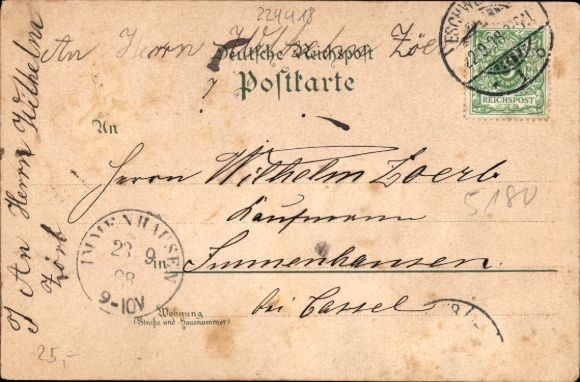 224418
An Herrn Wilhelm Zö
Deutsche Reichspost
Postkarte
ESCHWE
22 9 98
REICHSPOST
An
Herrn Wilhelm Zoerb
Kaufmann
in Immenhausen
bei Cassel
5180
IMMENHAUSEN
23 9
98
9-10V
Wohnung
(Straße und Hausnummer)
J An Herrn Wilhelm
Zörb
25,-